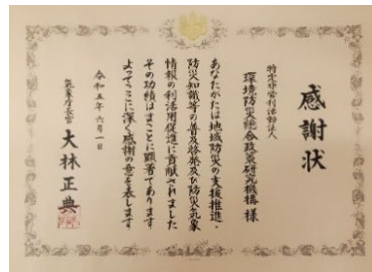 感謝状
特定非営利活動法人
環境防災総合政策研究機構 様
あなたがたは地域防災の支援推進・
防災知識等の普及啓発及び防災気象
情報の利活用促進に貢献されました
その功績はまことに顕著であります
よってここに深く感謝の意を表します
令和五年六月一日
気象庁長官 大林正典